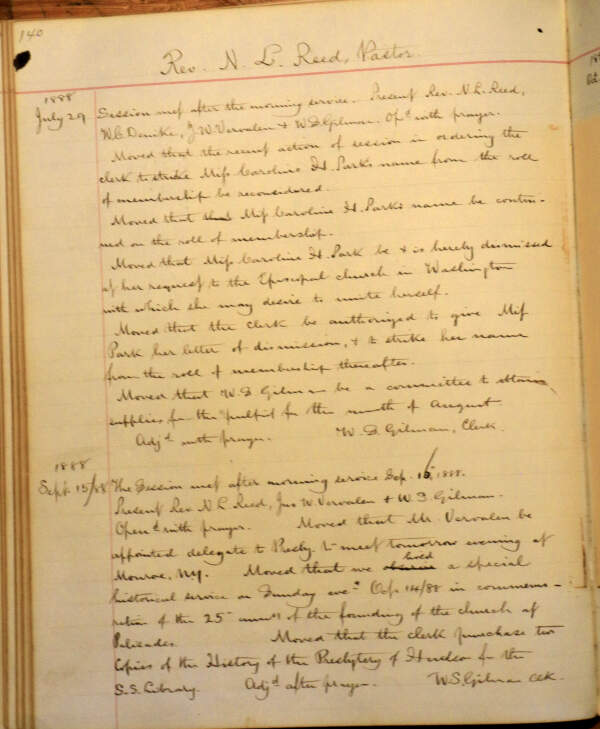 140
Rev. N. L. Reed, Pastor.
1888
July 29
Session met after the morning service. Present Rev. N. L. Reed,
W. C. Denike, J. W. Vervalen & W. S. Gilman. Opd with prayer.
Moved that the recent action of session in ordering the
clerk to strike Miss Caroline H. Parks name from the roll
of membership be reconsidered.
Moved that that Miss Caroline H. Parks name be contin-
ued on the roll of membership.
Moved that Miss Caroline H. Park be & is hereby dismissed
at her request to the Episcopal church in Washington
with which she may desire to unite herself.
Moved that the Clerk be authorized to give Miss
Park her letter of dismission, & to strike her name
from the roll of membership thereafter.
Moved that W. S. Gilman be a committee to obtain
supplies for the pulpit for the month of August.
Adjd with prayer. W. S. Gilman, Clerk.
1888
Sept. 15/88
The Session met after morning service Sep. 16, 1888.
Present Rev. N. L. Reed, Jno W. Vervalen & W. S. Gilman.
Opend with prayer. Moved that Mr. Vervalen be
appointed delegate to Presby. to meet tomorrow evening at
Monroe, NY. Moved that we hold a special
historical service on Sunday eveg Oct 14/88 in commemo-
ration of the 25 annivy of the founding of the church at
Palisades. Moved that the clerk purchase two
Copies of the History of the Presbytery of Hudson for the
S. S. Library. Adjd after prayer. W. S. Gilman Clk.